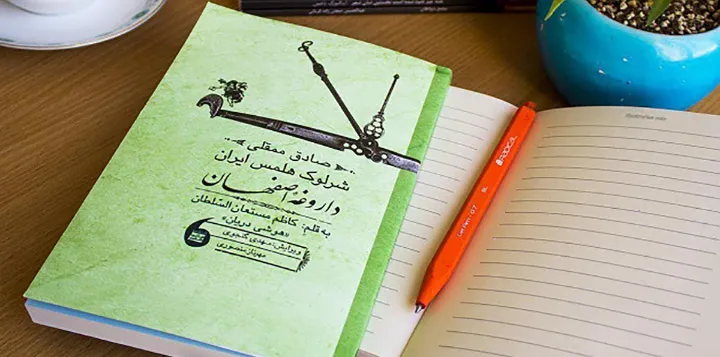 صادق ممقلی
شرلوک هلمس ایران
داروغهٔ اصفهان
به قلم: کاظم مستعان‌السلطان
«هوشی دریان»
ویرایش: مهدی گنجوی
مهرناز منصوری